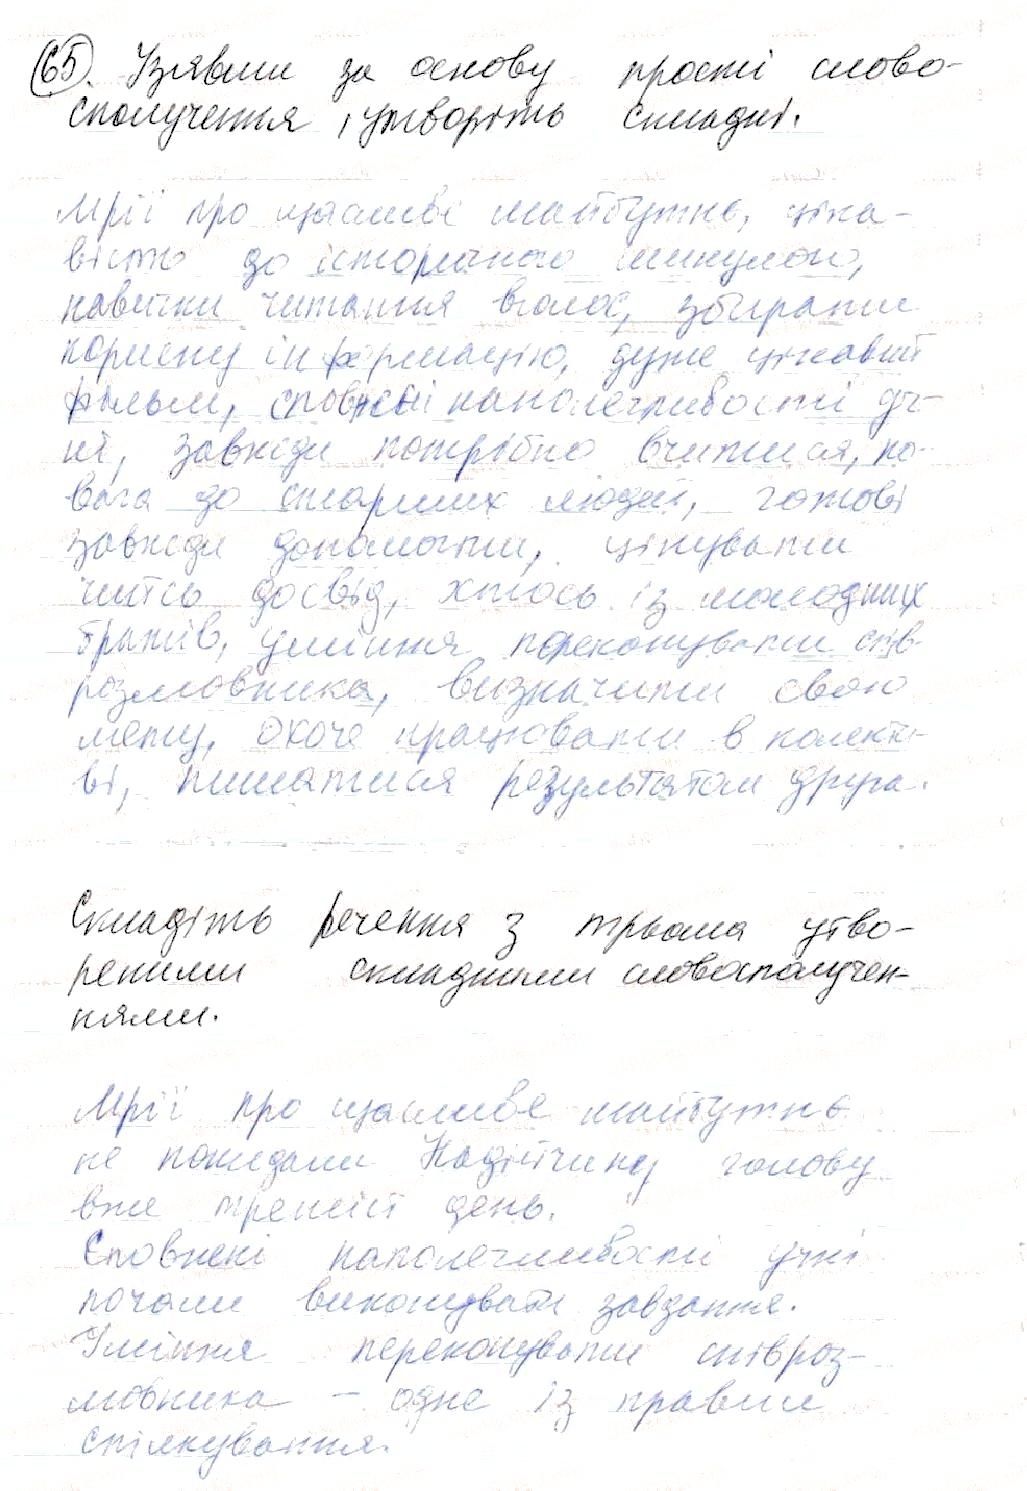 65. Узявши за основу прості слово-
сполучення, утворіть складні.
Мрії про щасливе майбутнє, ціка-
вість до історичного минулого,
навички читання вголос, збирати
корисну інформацію, дуже цікавий
фільм, сповнені наполегливості уч-
ні, завжди потрібно вчитися, по-
вага до старших людей, готові
завжди допомогти, цінувати
чийсь досвід, хтось із молодших
братів, уміння переконувати спів-
розмовника, визначити свою
мету, охоче працювати в колекти-
ві, пишатися результатом друга.
Складіть речення з трьома утво-
реними складними словосполучен-
нями.
Мрії про щасливе майбутнє
не покидали Надійчину голову
вже третій день.
Сповнені наполегливості учні
почали виконувати завдання.
Уміння переконувати співроз-
мовника – одне із правил
спілкування.